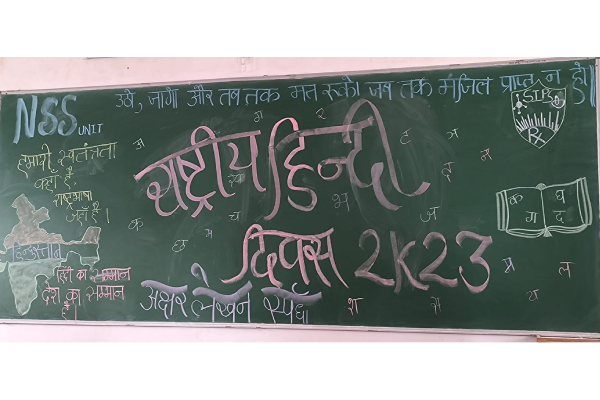 उठो, जागो और तब तक मत रूको जब तक मंजिल प्राप्त न हो।
NSS UNIT
हमारी स्वतंत्रता
कहाँ है,
राष्ट्रभाषा
जहाँ है।
राष्ट्रीय हिन्दी
दिवस 2K23
हिन्दुस्तान
हिंदी का सम्मान
देश का सम्मान
है
अक्षर लेखन स्पर्धा
Rx
क ख
ग द
ग
र
च
क
छ
अ
द
न
त्र
प्र
ल
य